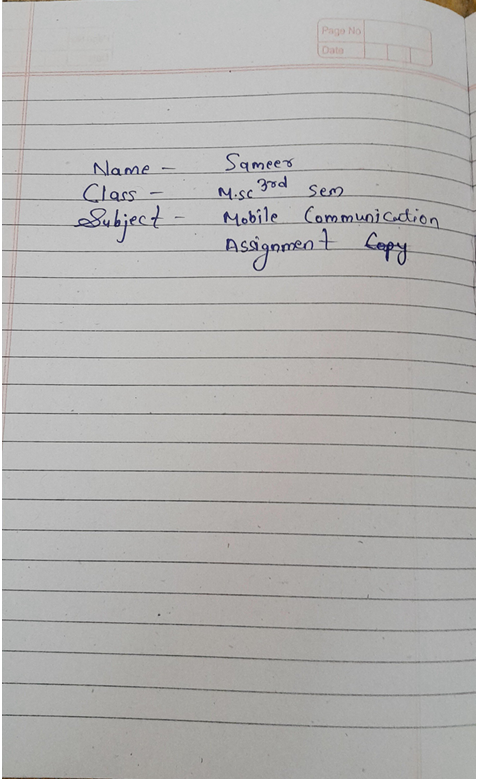 Page No
Date
Name - Sameer
Class - M.sc 3rd sem
Subject - Mobile Communication
Assignment Copy